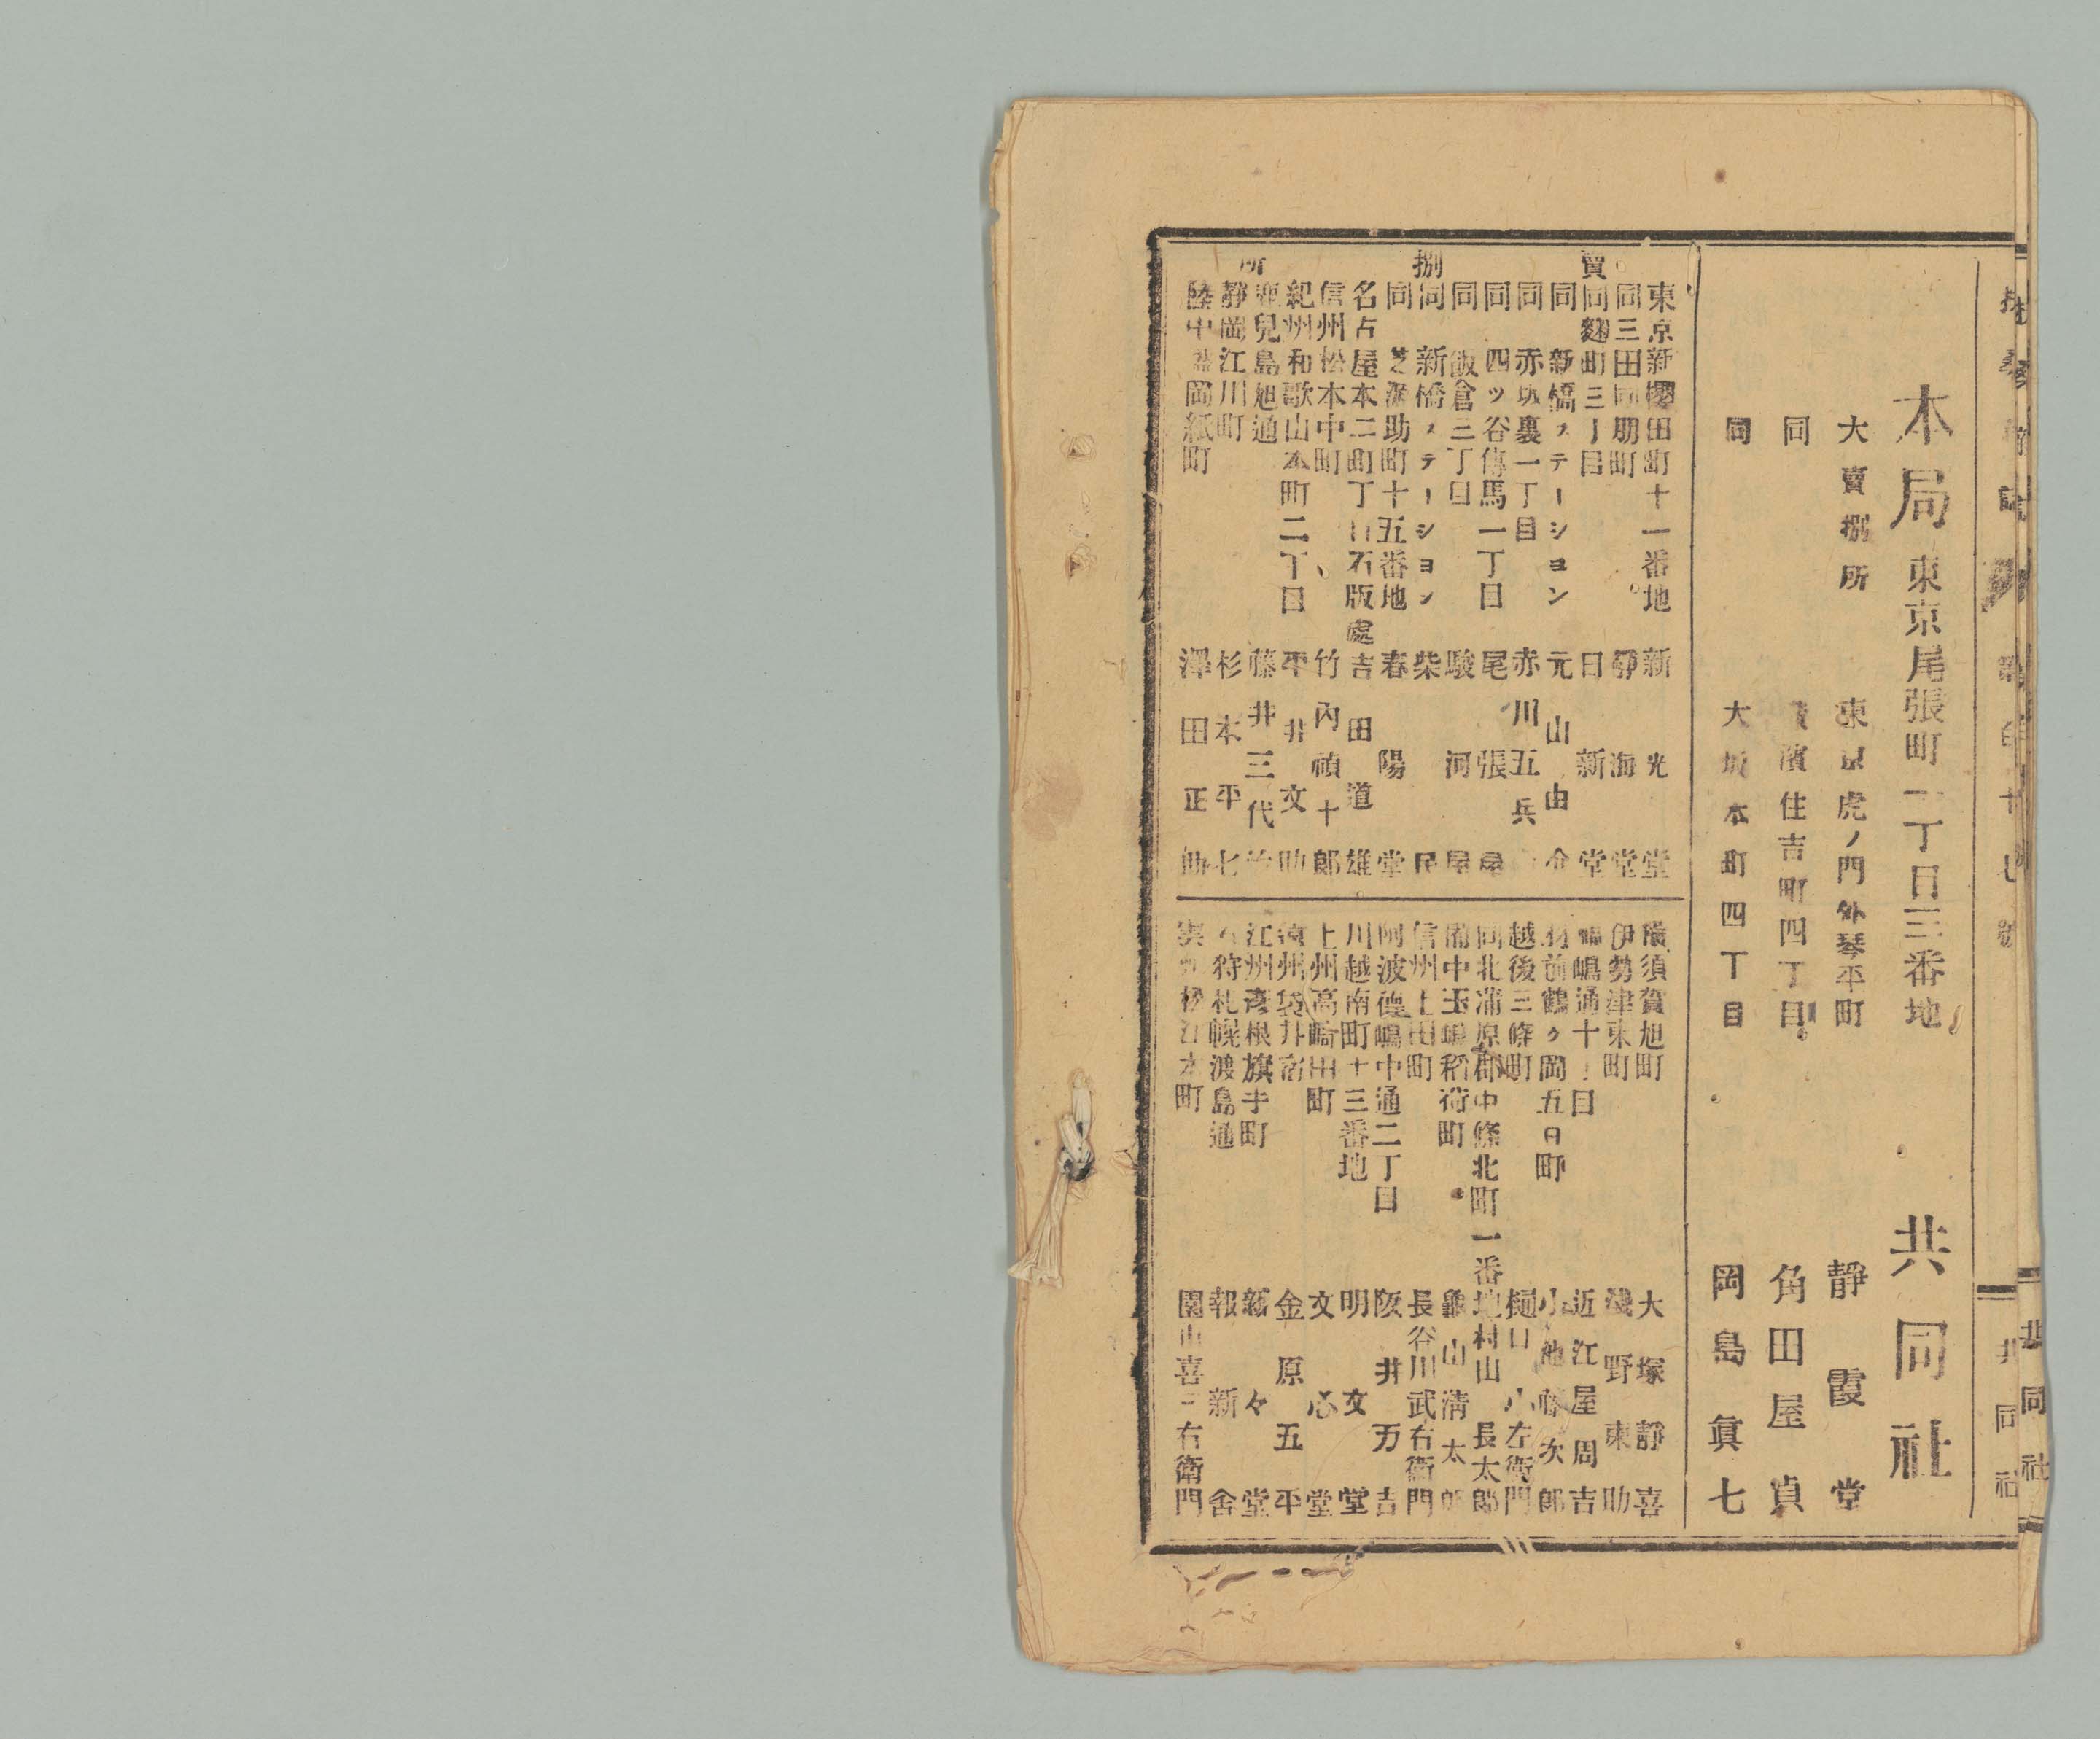 本局 東京尾張町一丁目三番地 共同社
大賣捌所 東京虎ノ門外琴平町 靜霞堂
同 橫濱住吉町四丁目 角田屋貞
同 大坂本町四丁目 岡島眞七
賣捌所
東京新櫻田町十一番地 新光堂
同三田同朋町 靜海堂
同麴町三丁目 日新堂
同 新橋ステーション 元山由
同 赤坂裏一丁目 赤川五兵
同 四ツ谷傳馬一丁目 尾張屋
同 飯倉三丁目 駿河屋
同 新橋ステーション 柴
同 芝源助町十五番地 春陽堂
名古屋本二町丁目石版處 吉田道雄
信州松本中町 竹內禎十郎
紀州和歌山本町二丁目 平井文助
鹿兒島旭通 藤井三代
靜岡江川町 杉本平七
陸中盛岡紙町 澤田正助
橫須賀旭町 大塚靜喜
伊勢津東町 淺野東助
嶋通十丁目 近江屋周吉
羽前鶴ヶ岡五日町 小池藤次郎
越後三條町 樋口小左衛門
同北蒲原郡中條北町一番地 村山長太郎
備中玉嶋稻荷町 龜山淸太郎
信州上田町 長谷川武右衛門
阿波德嶋中通二丁目 阪井万吉
川越南町十三番地 明文堂
上州高崎田町 文心堂
遠州袋井宿 金原五平
江州彥根旗手町 新々堂
石狩札幌渡島通 報新舍
松江本町 園山喜三右衛門
共同社